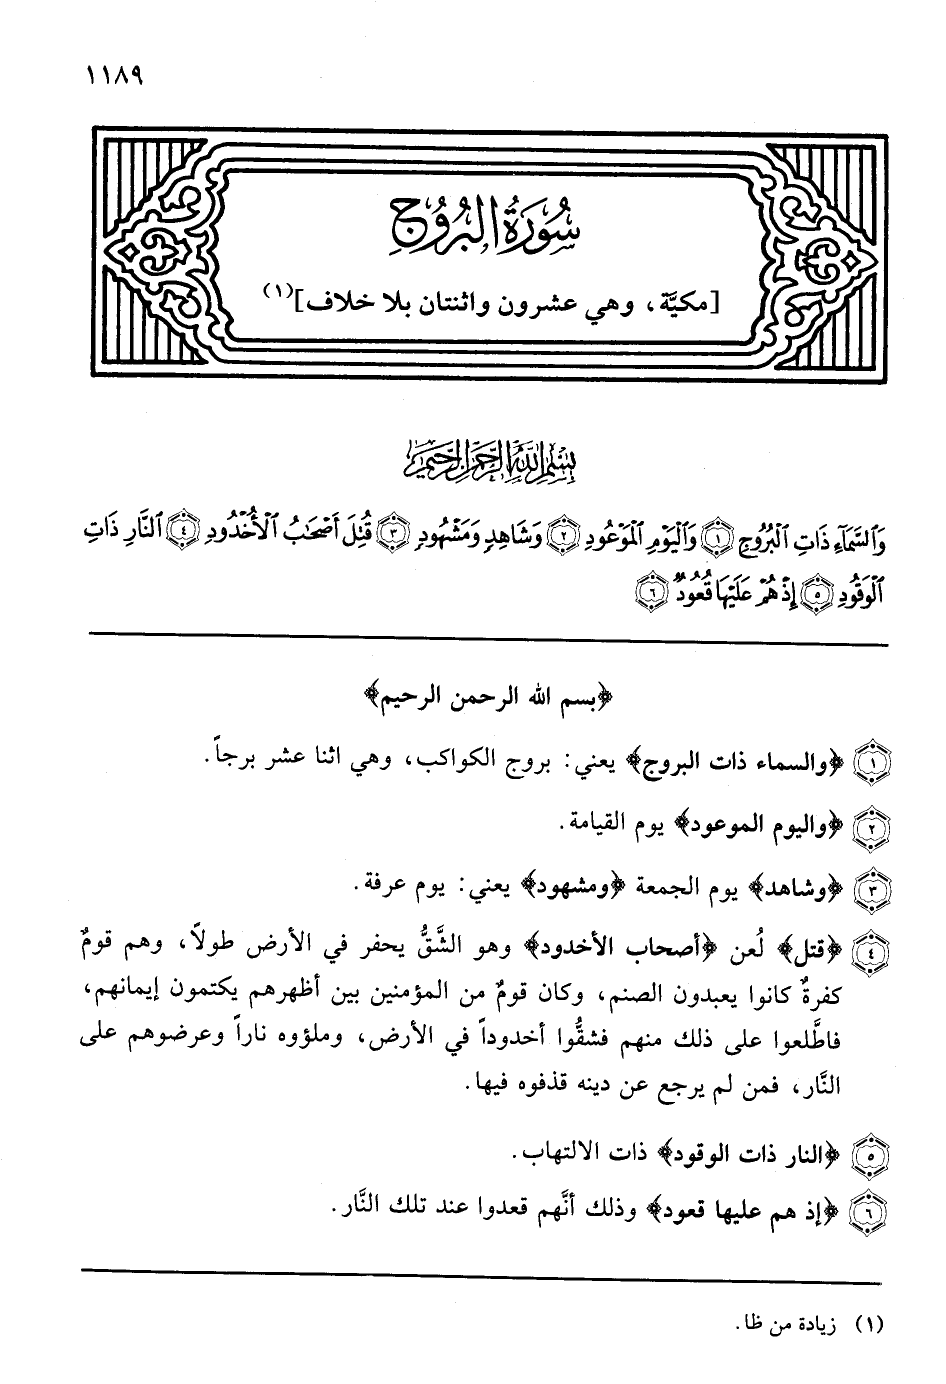 ١١٨٩
سُورَةُ البُرُوجِ
[مكيَّة، وهي عشرون واثنتان بلا خلاف](١)
بِسْمِ اللَّهِ الرَّحْمَٰنِ الرَّحِيمِ
وَٱلسَّمَآءِ ذَاتِ ٱلْبُرُوجِ ١ وَٱلْيَوْمِ ٱلْمَوْعُودِ ٢ وَشَاهِدٍ وَمَشْهُودٍ ٣ قُتِلَ أَصْحَٰبُ ٱلْأُخْدُودِ ٤ ٱلنَّارِ ذَاتِ
ٱلْوَقُودِ ٥ إِذْ هُمْ عَلَيْهَا قُعُودٌ ٦
﴿بسم الله الرحمن الرحيم﴾
١ ﴿والسماء ذات البروج﴾ يعني: بروج الكواكب، وهي اثنا عشر برجاً.
٢ ﴿واليوم الموعود﴾ يوم القيامة.
٣ ﴿وشاهد﴾ يوم الجمعة ﴿ومشهود﴾ يعني: يوم عرفة.
٤ ﴿قتل﴾ لُعن ﴿أصحاب الأخدود﴾ وهو الشَّقُّ يحفر في الأرض طولاً، وهم قومٌ
كفرةٌ كانوا يعبدون الصنم، وكان قومٌ من المؤمنين بين أظهرهم يكتمون إيمانهم،
فاطَّلعوا على ذلك منهم فشقُّوا أخدوداً في الأرض، وملؤوه ناراً وعرضوهم على
النَّار، فمن لم يرجع عن دينه قذفوه فيها.
٥ ﴿النار ذات الوقود﴾ ذات الالتهاب.
٦ ﴿إذ هم عليها قعود﴾ وذلك أنَّهم قعدوا عند تلك النَّار.
(١) زيادة من ظا.